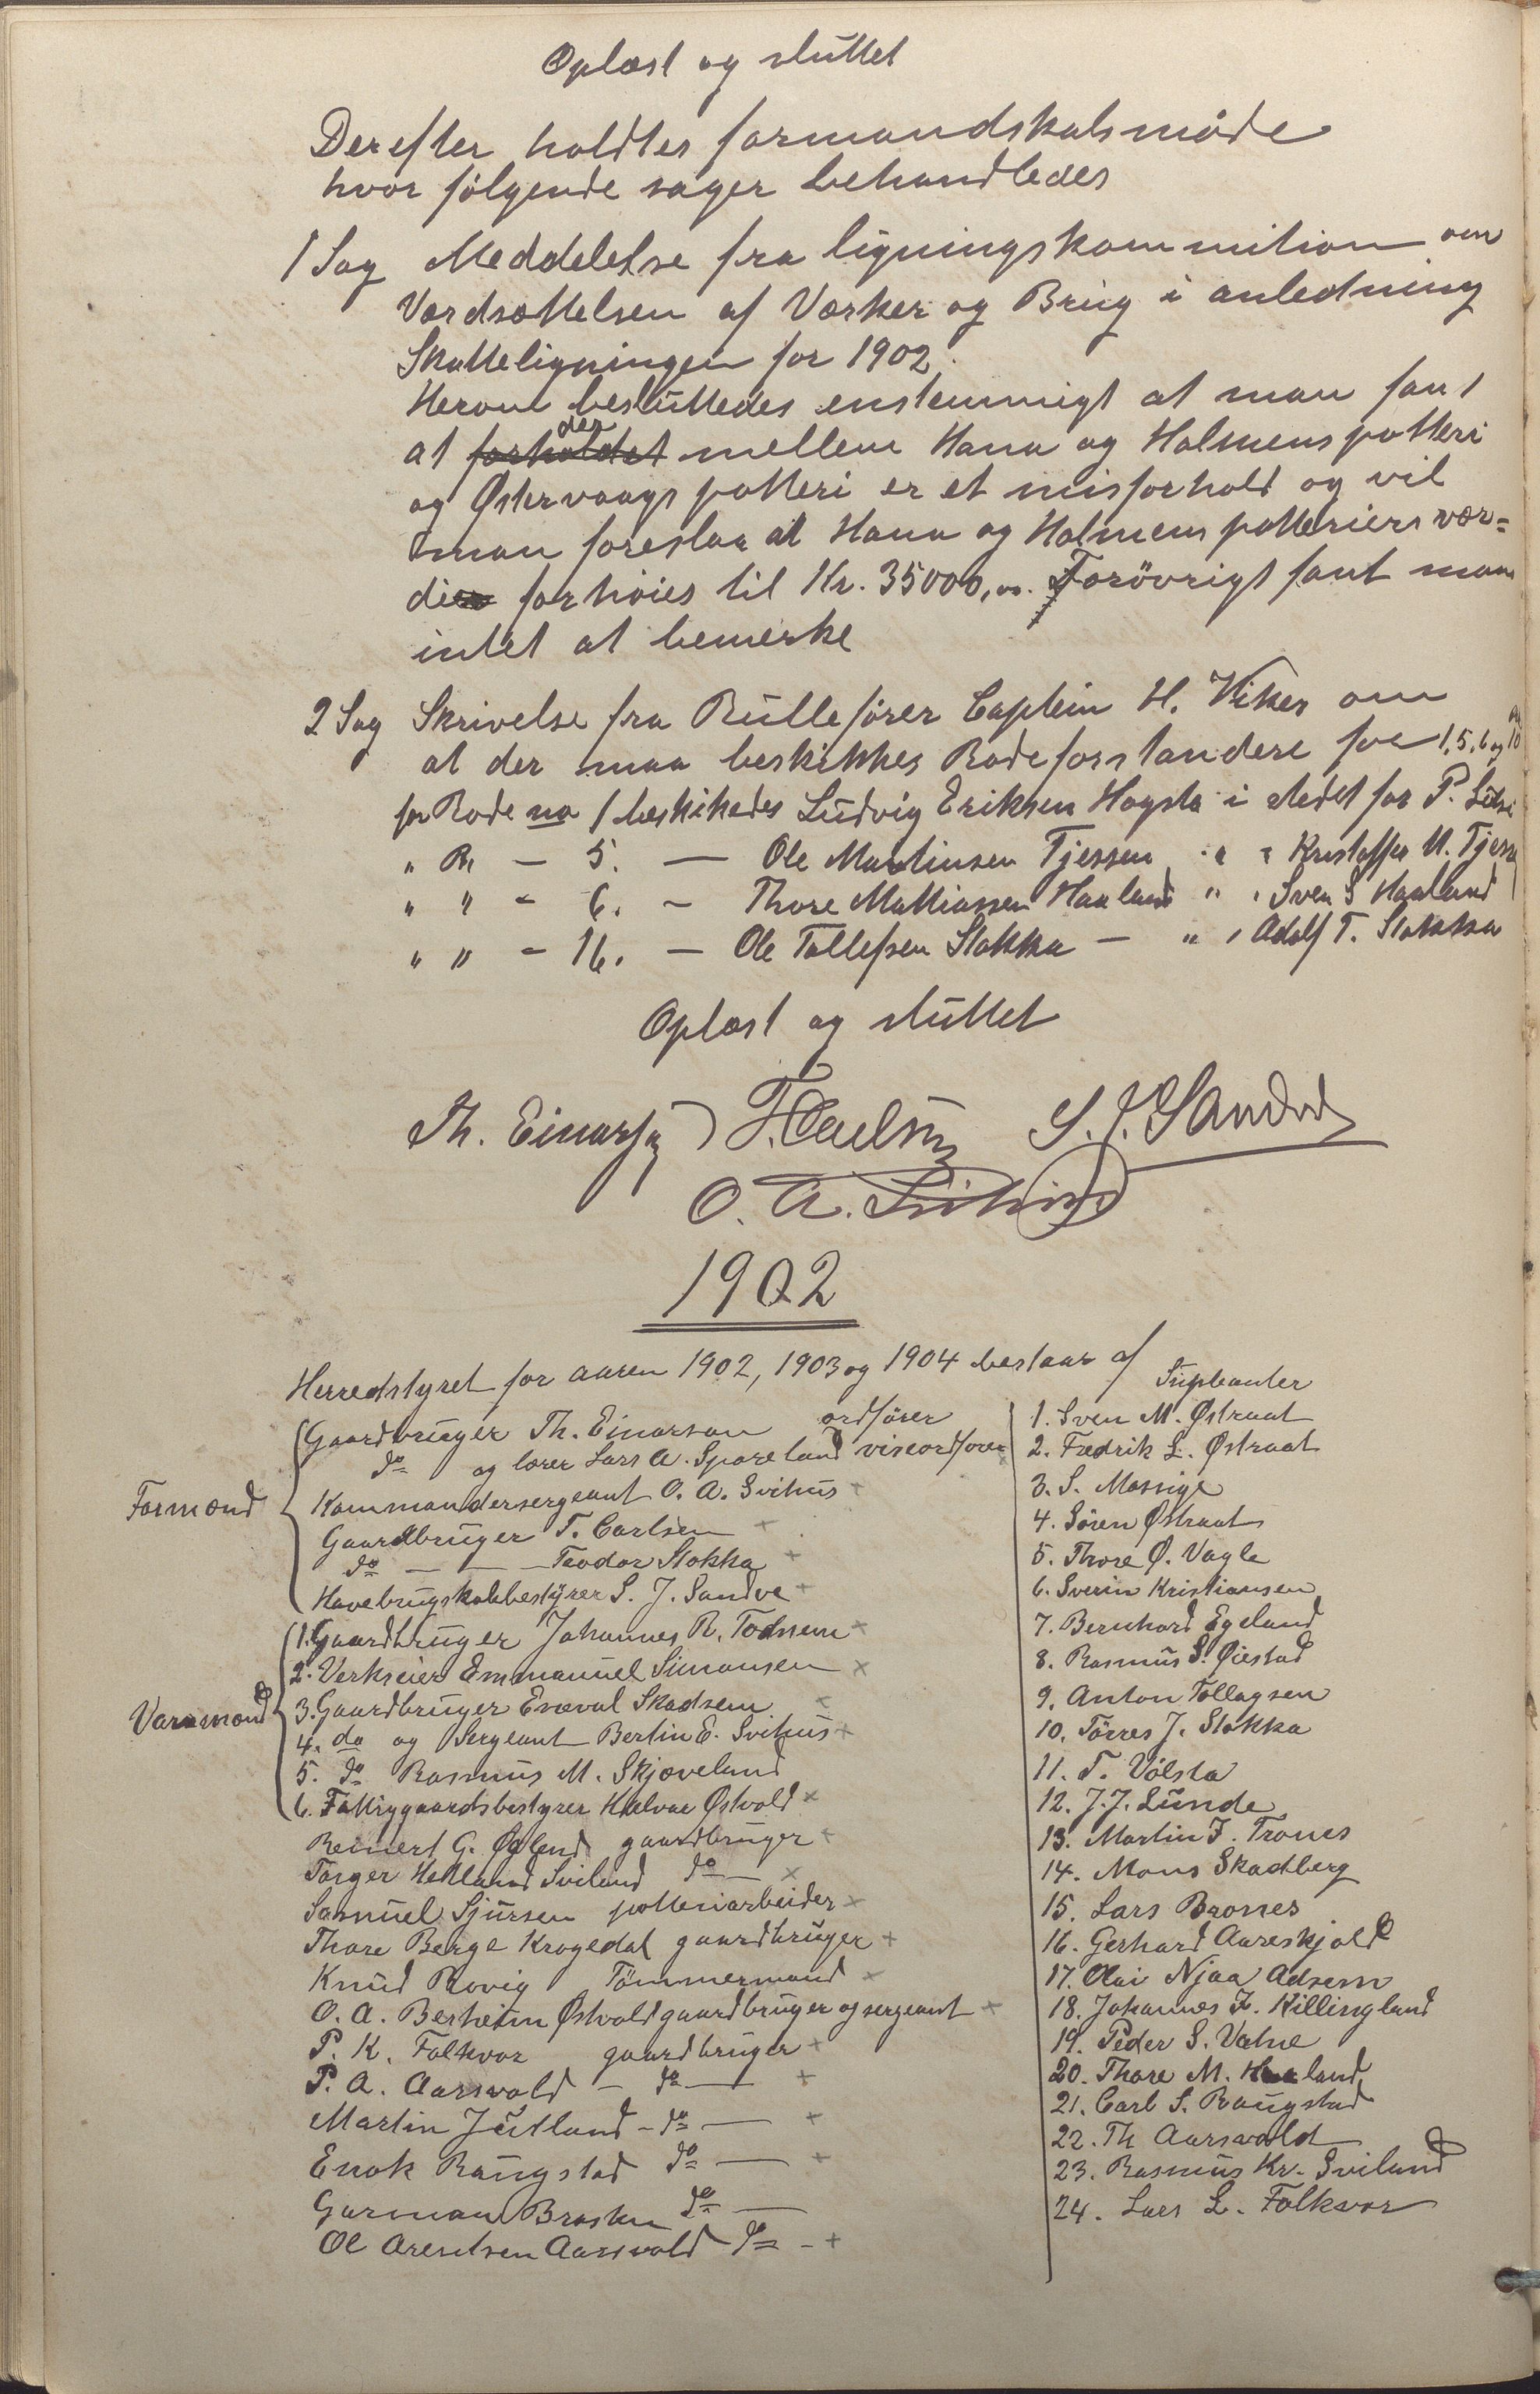 Oplæst og sluttet
Derefter holdtes formandskabsmøde
hvor følgende sager behandledes
1 Sag Meddelelse fra ligningskommition om
Værdsættelsen af Værker og Brug i anledning
Skatteligningen for 1902.
Herom besluttedes enstemmigt at man fant
at forholdet der mellem Hana og Holmens potteri
og Østervaags potteri er et misforhold og vil
man foreslaa at Hana og Holmens potteriers vær=
di forhøies til Kr. 35000,00. Forøvrigt fant man
intet at bemerke
2 Sag Skrivelse fra Rullefører Captein H. Viker om
at der maa beskikkes Rodeforstandere for 1, 5, 6 og 16
for Rode no 1 beskikedes Ludvig Eriksen Hogsta i stedet for P.
" R. — 5. — Ole Martinsen Tjessem " " Kristoffer M. Tjessem
" " - 6. - Thore Mathiassen Haaland " " Sven S Haaland
" " - 16. — Ole Tollefsen Stokka — " " Adolf T. Stokka
Oplæst og sluttet
Th. Einarsen T. Carlsen S. J. Sandve
O. A. Svihus
1902
Herredstyret for aaren 1902, 1903 og 1904 bestaar af
Supleanter
Formænd
Gaardbruger Th. Einarsen ordfører
do og lærer Lars A. Spareland viseordfører
Kommandersergeant O. A. Svihus +
Gaardbruger T. Carlsen +
do — — Teodor Stokka +
Havebrugskolebestyrer S. J. Sandve +
Varamænd
1. Gaardbruger Johannes R. Todnem +
2. Verkseier Emmanuel Simonsen +
3. Gaardbruger Eneval Skadsem +
4. do og Sergeant Bertin E. Svihus +
5. do Rasmus M. Skjæveland
6. Fattiggaardsbestyrer Halvar Østvold +
Reinert G. Øglend gaardbruger +
Torger Hetland Sviland do — +
Samuel Sjursen potteriarbeider +
Thore Berge Krogedal gaardbruger +
Knud Rovig Tømmermand +
O. A. Berheim Østvold gaardbruger og sergeant +
P. K. Folkvor gaardbruger +
P. A. Aarsvold — do — +
Martin Jutland - do — +
Enok Raugstad do — +
Garman Brasken do —
Ol Arentsen Aarsvold do - +
1. Sven M. Østraat
2. Fredrik L. Østraat
3. S. Mossige
4. Søren Østraat
5. Thore Ø. Vagle
6. Sverin Kristiansen
7. Bernhard Egeland
8. Rasmus S. Øiestad
9. Anton Tollagsen
10. Tørres J. Stokka
11. T. Vølsta
12. J. J. Lunde
13. Martin F. Trones
14. Mons Skadberg
15. Lars Brones
16. Gerhard Aareskjold
17. Olai Njaa Adsem
18. Johannes L. Killingland
19. Peder S. Vatne
20. Thore M. Haaland
21. Carl S. Raugstad
22. Th Aarsvold
23. Rasmus Kr. Sviland
24. Lars L. Folkvor